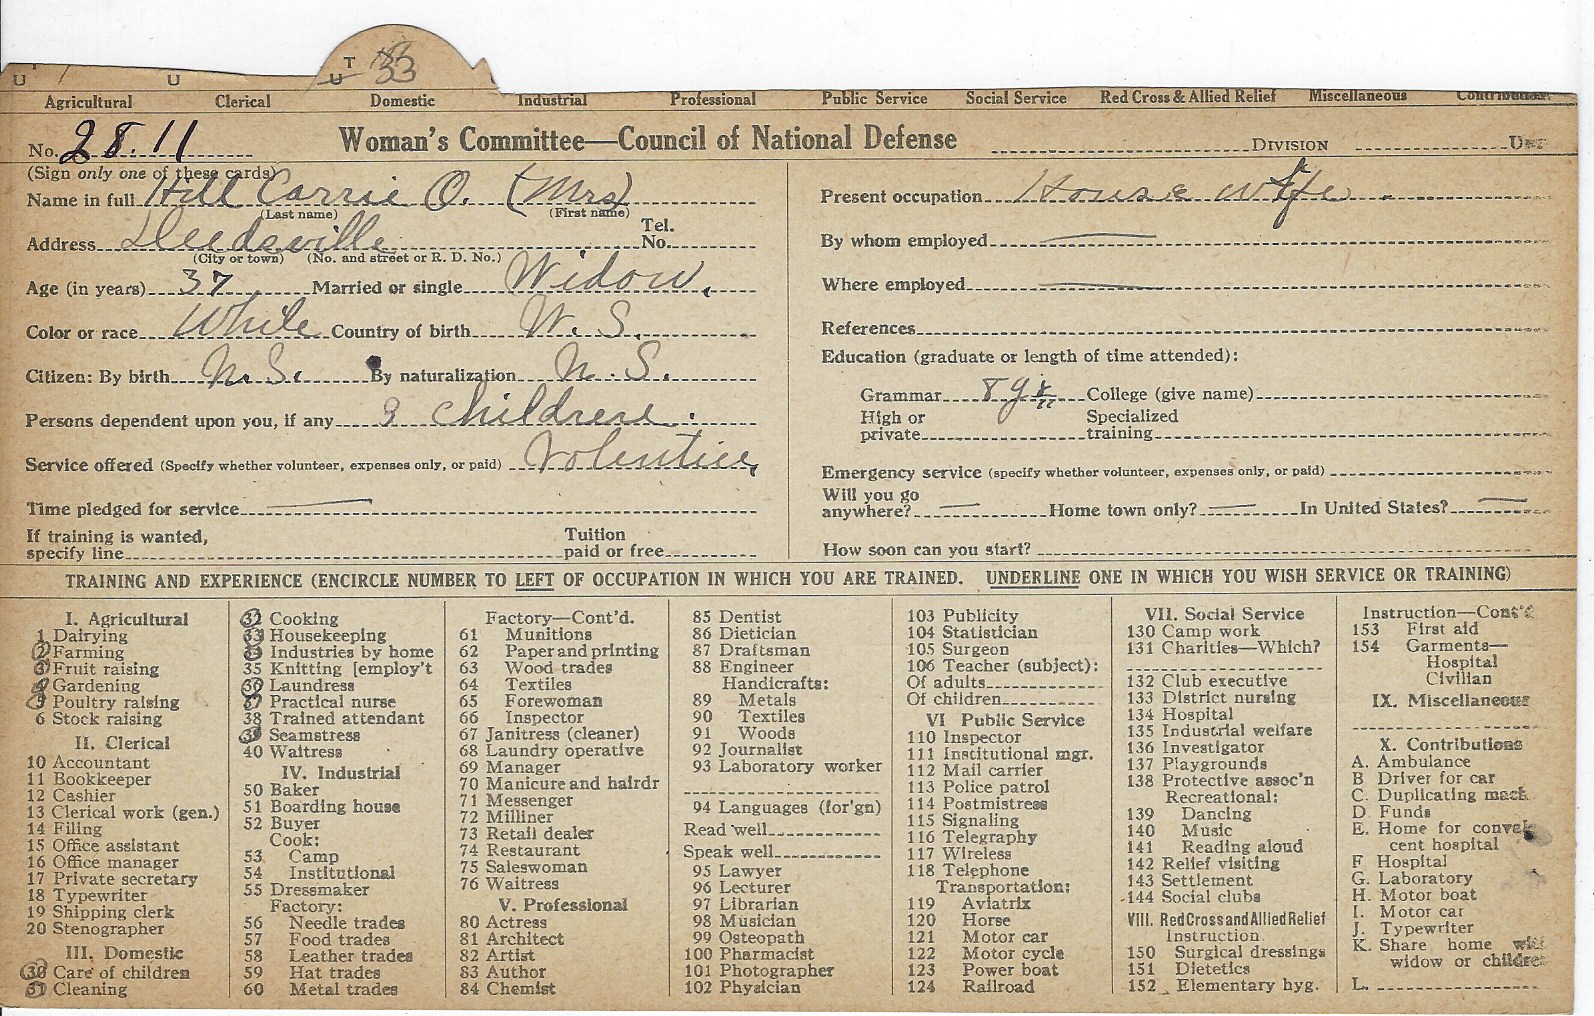 U T U U T 33
Agricultural Clerical Domestic Industrial Professional Public Service Social Service Red Cross & Allied Relief Miscellaneous Contributions
No. 28.11 Woman's Committee—Council of National Defense DIVISION
(Sign only one of these cards)
Name in full Hill Carrie O. (Mrs)
(Last name) (First name)
Address Deedsville Tel. No.
(City or town) (No. and street or R. D. No.)
Age (in years) 37 Married or single Widow.
Color or race White Country of birth U. S.
Citizen: By birth U. S. By naturalization U. S.
Persons dependent upon you, if any 2 children.
Service offered (Specify whether volunteer, expenses only, or paid)
Time pledged for service
If training is wanted, specify line Tuition paid or free
Present occupation House wife.
By whom employed
Where employed
References
Education (graduate or length of time attended):
Grammar 8 yr College (give name)
High or private Specialized training
Emergency service (specify whether volunteer, expenses only, or paid)
Will you go anywhere? Home town only? In United States?
How soon can you start?
TRAINING AND EXPERIENCE (ENCIRCLE NUMBER TO LEFT OF OCCUPATION IN WHICH YOU ARE TRAINED. UNDERLINE ONE IN WHICH YOU WISH SERVICE OR TRAINING)
I. Agricultural
1 Dairying
2 Farming
3 Fruit raising
4 Gardening
5 Poultry raising
6 Stock raising
II. Clerical
10 Accountant
11 Bookkeeper
12 Cashier
13 Clerical work (gen.)
14 Filing
15 Office assistant
16 Office manager
17 Private secretary
18 Typewriter
19 Shipping clerk
20 Stenographer
III. Domestic
30 Care of children
31 Cleaning
32 Cooking
33 Housekeeping
34 Industries by home
35 Knitting [employ't
36 Laundress
37 Practical nurse
38 Trained attendant
39 Seamstress
40 Waitress
IV. Industrial
50 Baker
51 Boarding house
52 Buyer
Cook:
53 Camp
54 Institutional
55 Dressmaker
Factory:
56 Needle trades
57 Food trades
58 Leather trades
59 Hat trades
60 Metal trades
Factory—Cont'd.
61 Munitions
62 Paper and printing
63 Wood trades
64 Textiles
65 Forewoman
66 Inspector
67 Janitress (cleaner)
68 Laundry operative
69 Manager
70 Manicure and hairdr
71 Messenger
72 Milliner
73 Retail dealer
74 Restaurant
75 Saleswoman
76 Waitress
V. Professional
80 Actress
81 Architect
82 Artist
83 Author
84 Chemist
85 Dentist
86 Dietician
87 Draftsman
88 Engineer
Handicrafts:
89 Metals
90 Textiles
91 Woods
92 Journalist
93 Laboratory worker
94 Languages (for'gn)
Read well
Speak well
95 Lawyer
96 Lecturer
97 Librarian
98 Musician
99 Osteopath
100 Pharmacist
101 Photographer
102 Physician
103 Publicity
104 Statistician
105 Surgeon
106 Teacher (subject):
Of adults
Of children
VI Public Service
110 Inspector
111 Institutional mgr.
112 Mail carrier
113 Police patrol
114 Postmistress
115 Signaling
116 Telegraphy
117 Wireless
118 Telephone
Transportation:
119 Aviatrix
120 Horse
121 Motor car
122 Motor cycle
123 Power boat
124 Railroad
VII. Social Service
130 Camp work
131 Charities—Which?
132 Club executive
133 District nursing
134 Hospital
135 Industrial welfare
136 Investigator
137 Playgrounds
138 Protective assoc'n
Recreational:
139 Dancing
140 Music
141 Reading aloud
142 Relief visiting
143 Settlement
144 Social clubs
VIII. Red Cross and Allied Relief
Instruction.
150 Surgical dressings
151 Dietetics
152 Elementary hyg.
Instruction—Cont'd
153 First aid
154 Garments—
Hospital
Civilian
IX. Miscellaneous
X. Contributions
A. Ambulance
B Driver for car
C. Duplicating mach.
D. Funds
E. Home for conval-
cent hospital
F Hospital
G. Laboratory
H. Motor boat
I. Motor car
J. Typewriter
K. Share home with
widow or children
L.